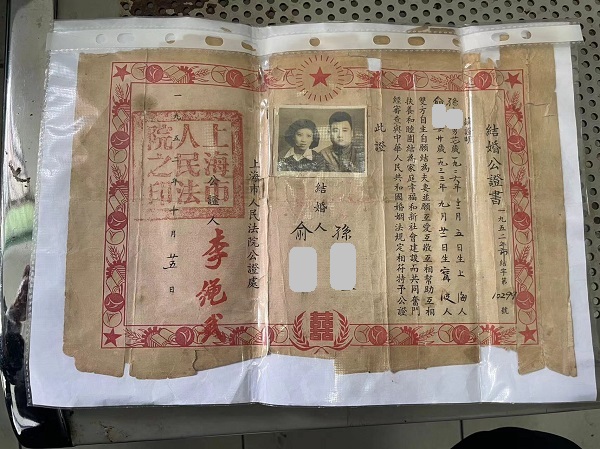 結婚公證書
一九五二年 結字第 號
孫 男 歲一九二六年十二月五日生上海人
俞 女廿歲一九三三年九月廿 日生寧波人
雙方自 自願結為夫妻並願互愛互敬互相幫助互相
扶養和睦團結為家庭幸福和新社會建設而共同奮鬥
經審查與中華人民共和國婚姻法規定相符特予公證
此證
結婚人
孫
俞
上海市人民法院公證處
公證人 李
一九五 年十月廿五日
上海市
人民法
院之印
囍